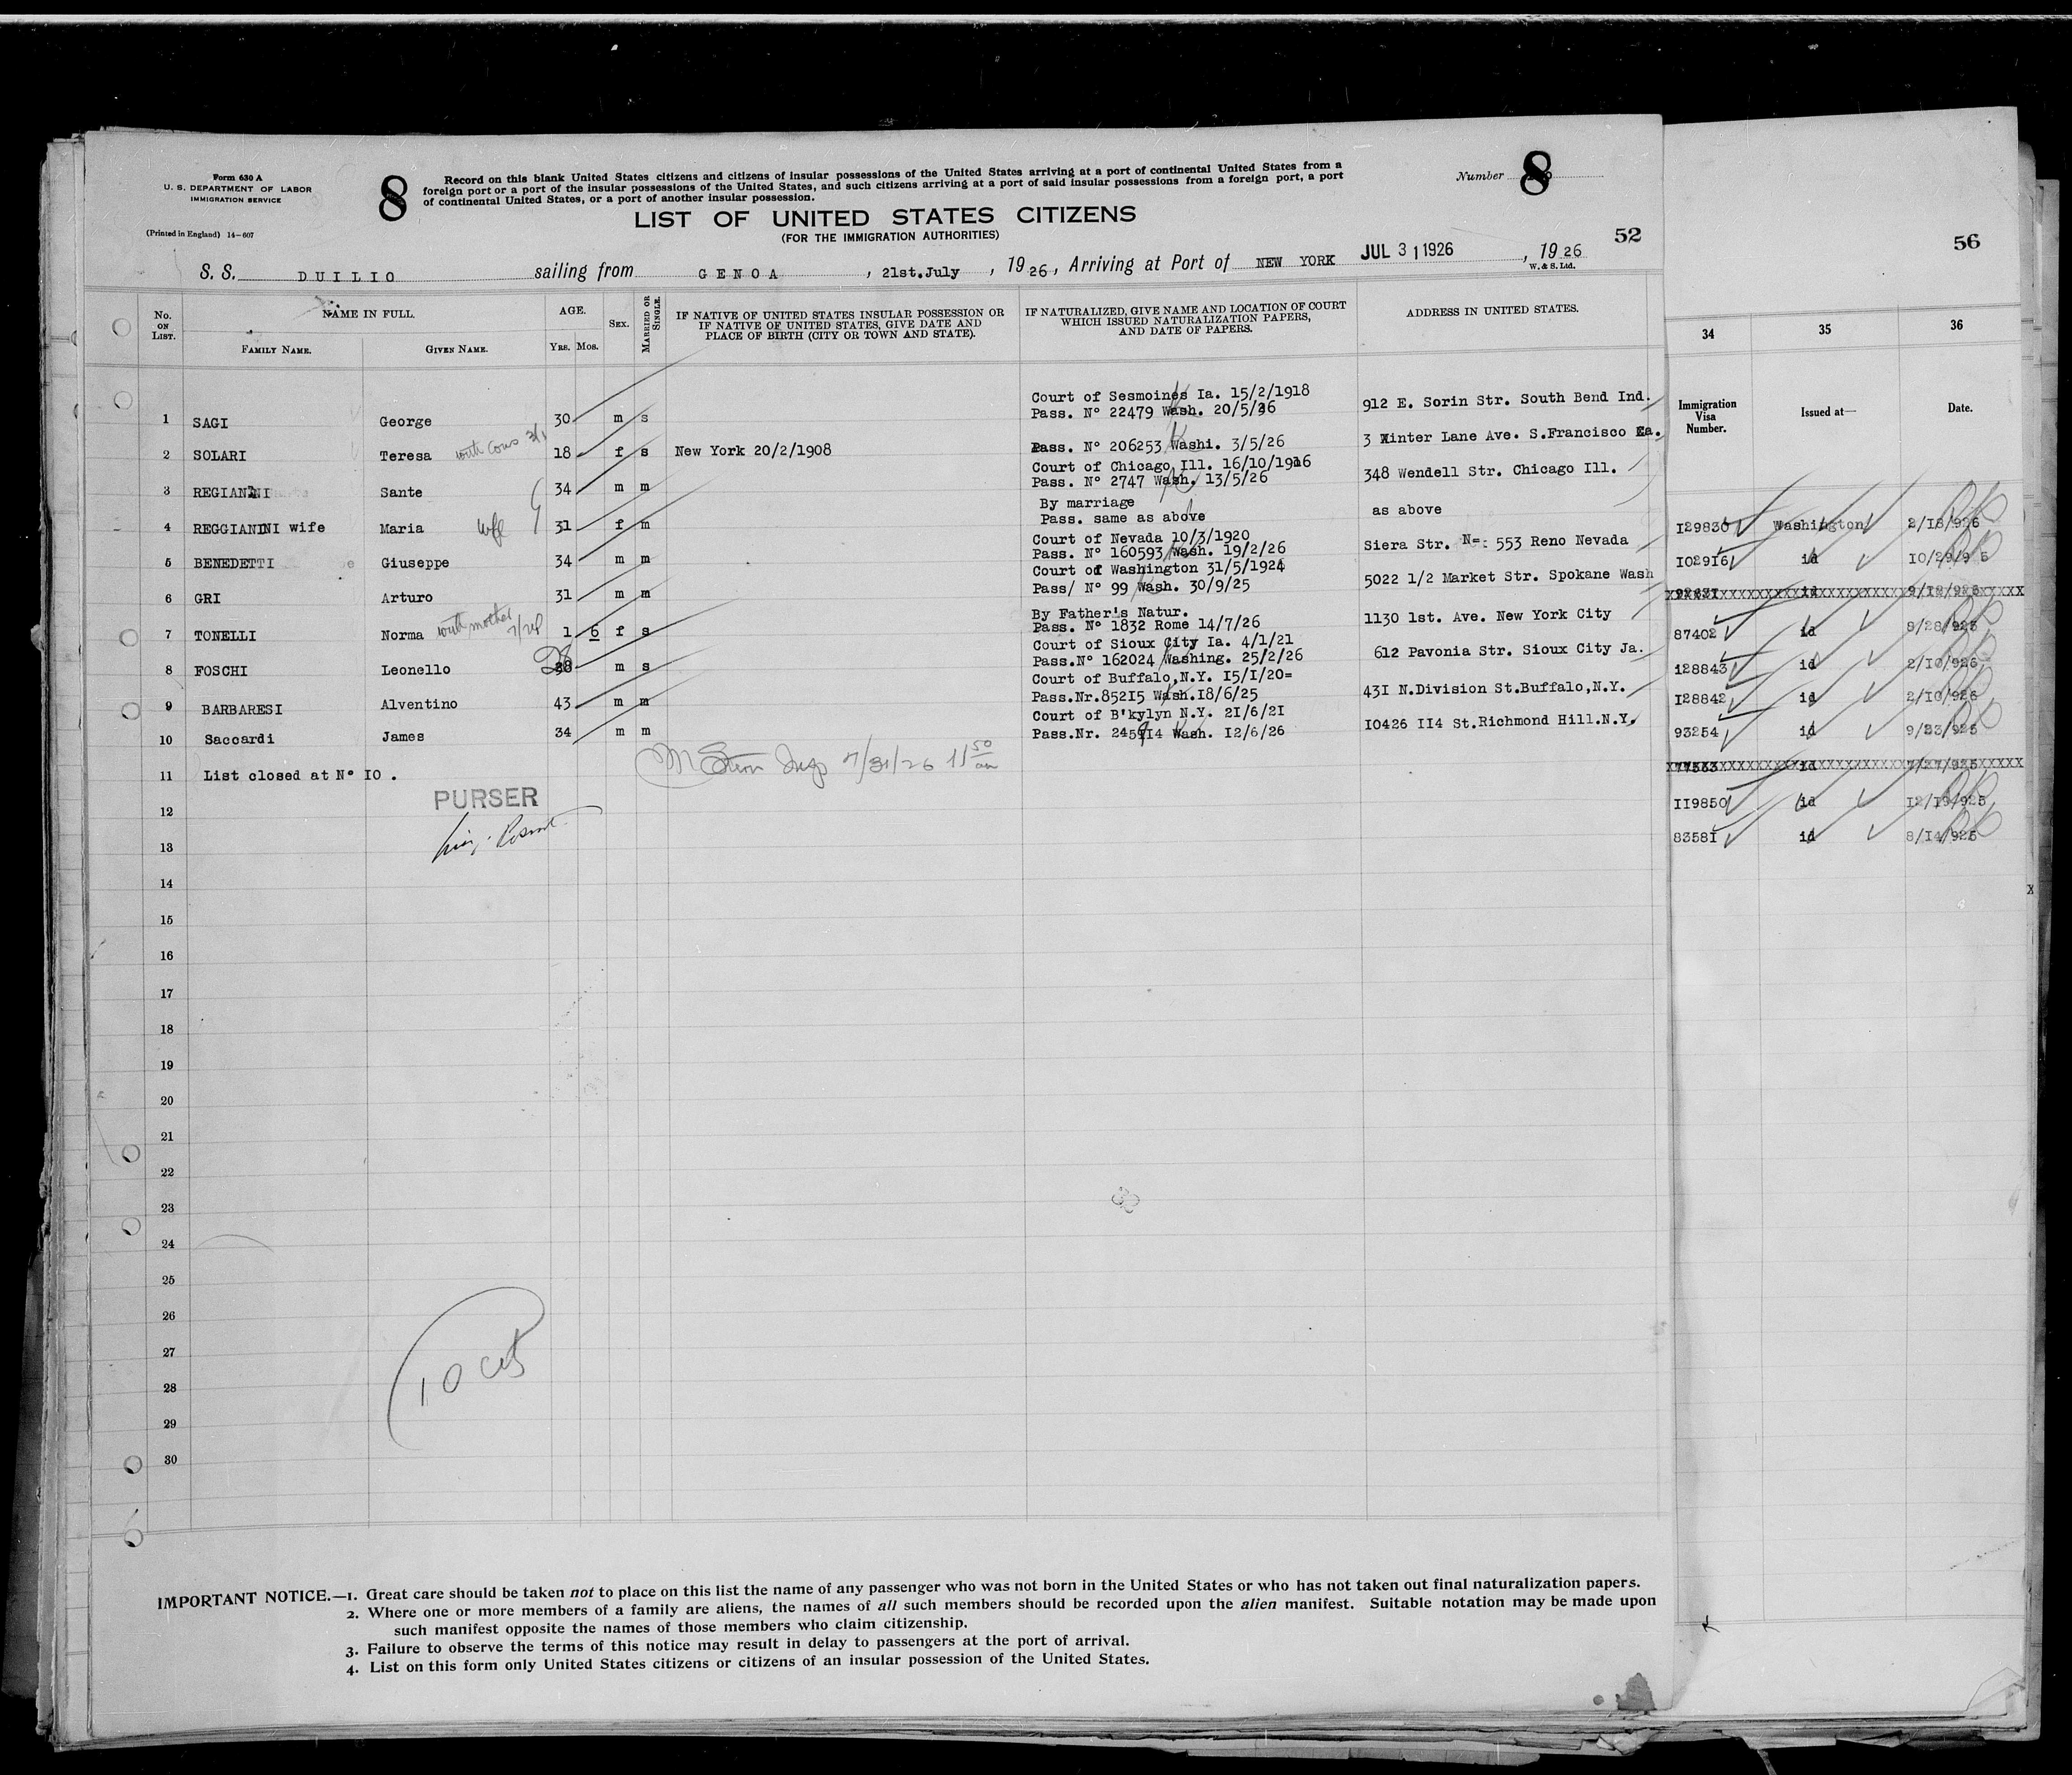 Form 630 A
U. S. DEPARTMENT OF LABOR
IMMIGRATION SERVICE
(Printed in England) 14-607
8
Record on this blank United States citizens and citizens of insular possessions of the United States arriving at a port of continental United States from a
foreign port or a port of the insular possessions of the United States, and such citizens arriving at a port of said insular possessions from a foreign port, a port
of continental United States, or a port of another insular possession.
Number 8
LIST OF UNITED STATES CITIZENS
(FOR THE IMMIGRATION AUTHORITIES)
52
S. S. DUILIO sailing from GENOA, 21st.July, 1926, Arriving at Port of NEW YORK JUL 31 1926, 1926
W. & S. Ltd.
No. ON LIST. NAME IN FULL. FAMILY NAME. GIVEN NAME. AGE. YRS. MOS. SEX. MARRIED OR SINGLE. IF NATIVE OF UNITED STATES INSULAR POSSESSION OR IF NATIVE OF UNITED STATES, GIVE DATE AND PLACE OF BIRTH (CITY OR TOWN AND STATE). IF NATURALIZED, GIVE NAME AND LOCATION OF COURT WHICH ISSUED NATURALIZATION PAPERS, AND DATE OF PAPERS. ADDRESS IN UNITED STATES.
Court of Sesmoines Ia. 15/2/1918
1 SAGI George 30 m s Pass. N° 22479 Wash. 20/5/26 912 E. Sorin Str. South Bend Ind.
2 SOLARI Teresa with cous 18 f s New York 20/2/1908 Pass. N° 206253 Washi. 3/5/26 3 Winter Lane Ave. S.Francisco Ca.
Court of Chicago Ill. 16/10/1916
3 REGIANINI Sante 34 m m Pass. N° 2747 Wash. 13/5/26 348 Wendell Str. Chicago Ill.
By marriage
4 REGGIANINI wife Maria wife 31 f m Pass. same as above as above
Court of Nevada 10/3/1920
5 BENEDETTI Giuseppe 34 m m Pass. N° 160593 Wash. 19/2/26 Siera Str. N=: 553 Reno Nevada
Court of Washington 31/5/1924
6 GRI Arturo 31 m m Pass/ N° 99 Wash. 30/9/25 5022 1/2 Market Str. Spokane Wash
By Father's Natur.
7 TONELLI Norma with mother 1 6 f s Pass. N° 1832 Rome 14/7/26 1130 1st. Ave. New York City
Court of Sioux City Ia. 4/1/21
8 FOSCHI Leonello 28 m s Pass.N° 162024 Washing. 25/2/26 612 Pavonia Str. Sioux City Ja.
Court of Buffalo,N.Y. I5/I/20=
9 BARBARESI Alventino 43 m m Pass.Nr.852I5 Wash.I8/6/25 43I N.Division St.Buffalo,N.Y.
Court of B'kylyn N.Y. 2I/6/2I
10 Saccardi James 34 m m Pass.Nr. Wash. I2/6/26 I0426 II4 St.Richmond Hill.N.Y.
11 List closed at N° I0 .
7/31/26 11 50 am
PURSER
12
13
14
15
16
17
18
19
20
21
22
23
24
25
26
27
28
29
30
10 cits
IMPORTANT NOTICE.—1. Great care should be taken not to place on this list the name of any passenger who was not born in the United States or who has not taken out final naturalization papers.
2. Where one or more members of a family are aliens, the names of all such members should be recorded upon the alien manifest. Suitable notation may be made upon
such manifest opposite the names of those members who claim citizenship.
3. Failure to observe the terms of this notice may result in delay to passengers at the port of arrival.
4. List on this form only United States citizens or citizens of an insular possession of the United States.
56
34 35 36
Immigration Visa Number. Issued at— Date.
I29830 Washington 2/18/926
I029I6 id I0/29/9 5
id
87402 id 8/28/925
I28843 id 2/10/926
I28842 id 2/10/926
93254 id 9/23/925
77563 id 7/27/925
II9850 id I2/19/925
8358I id 8/I4/925
X